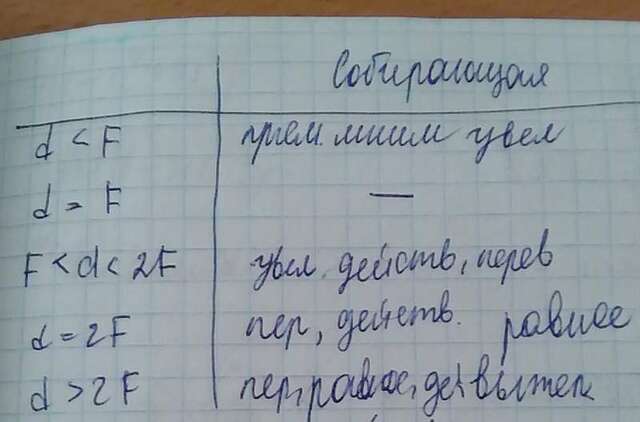 Собирающая
d < F прям. мним увел
d = F —
F < d < 2F увел. действ, перев
d = 2F пер, действ. равное
d > 2F пер, равное,